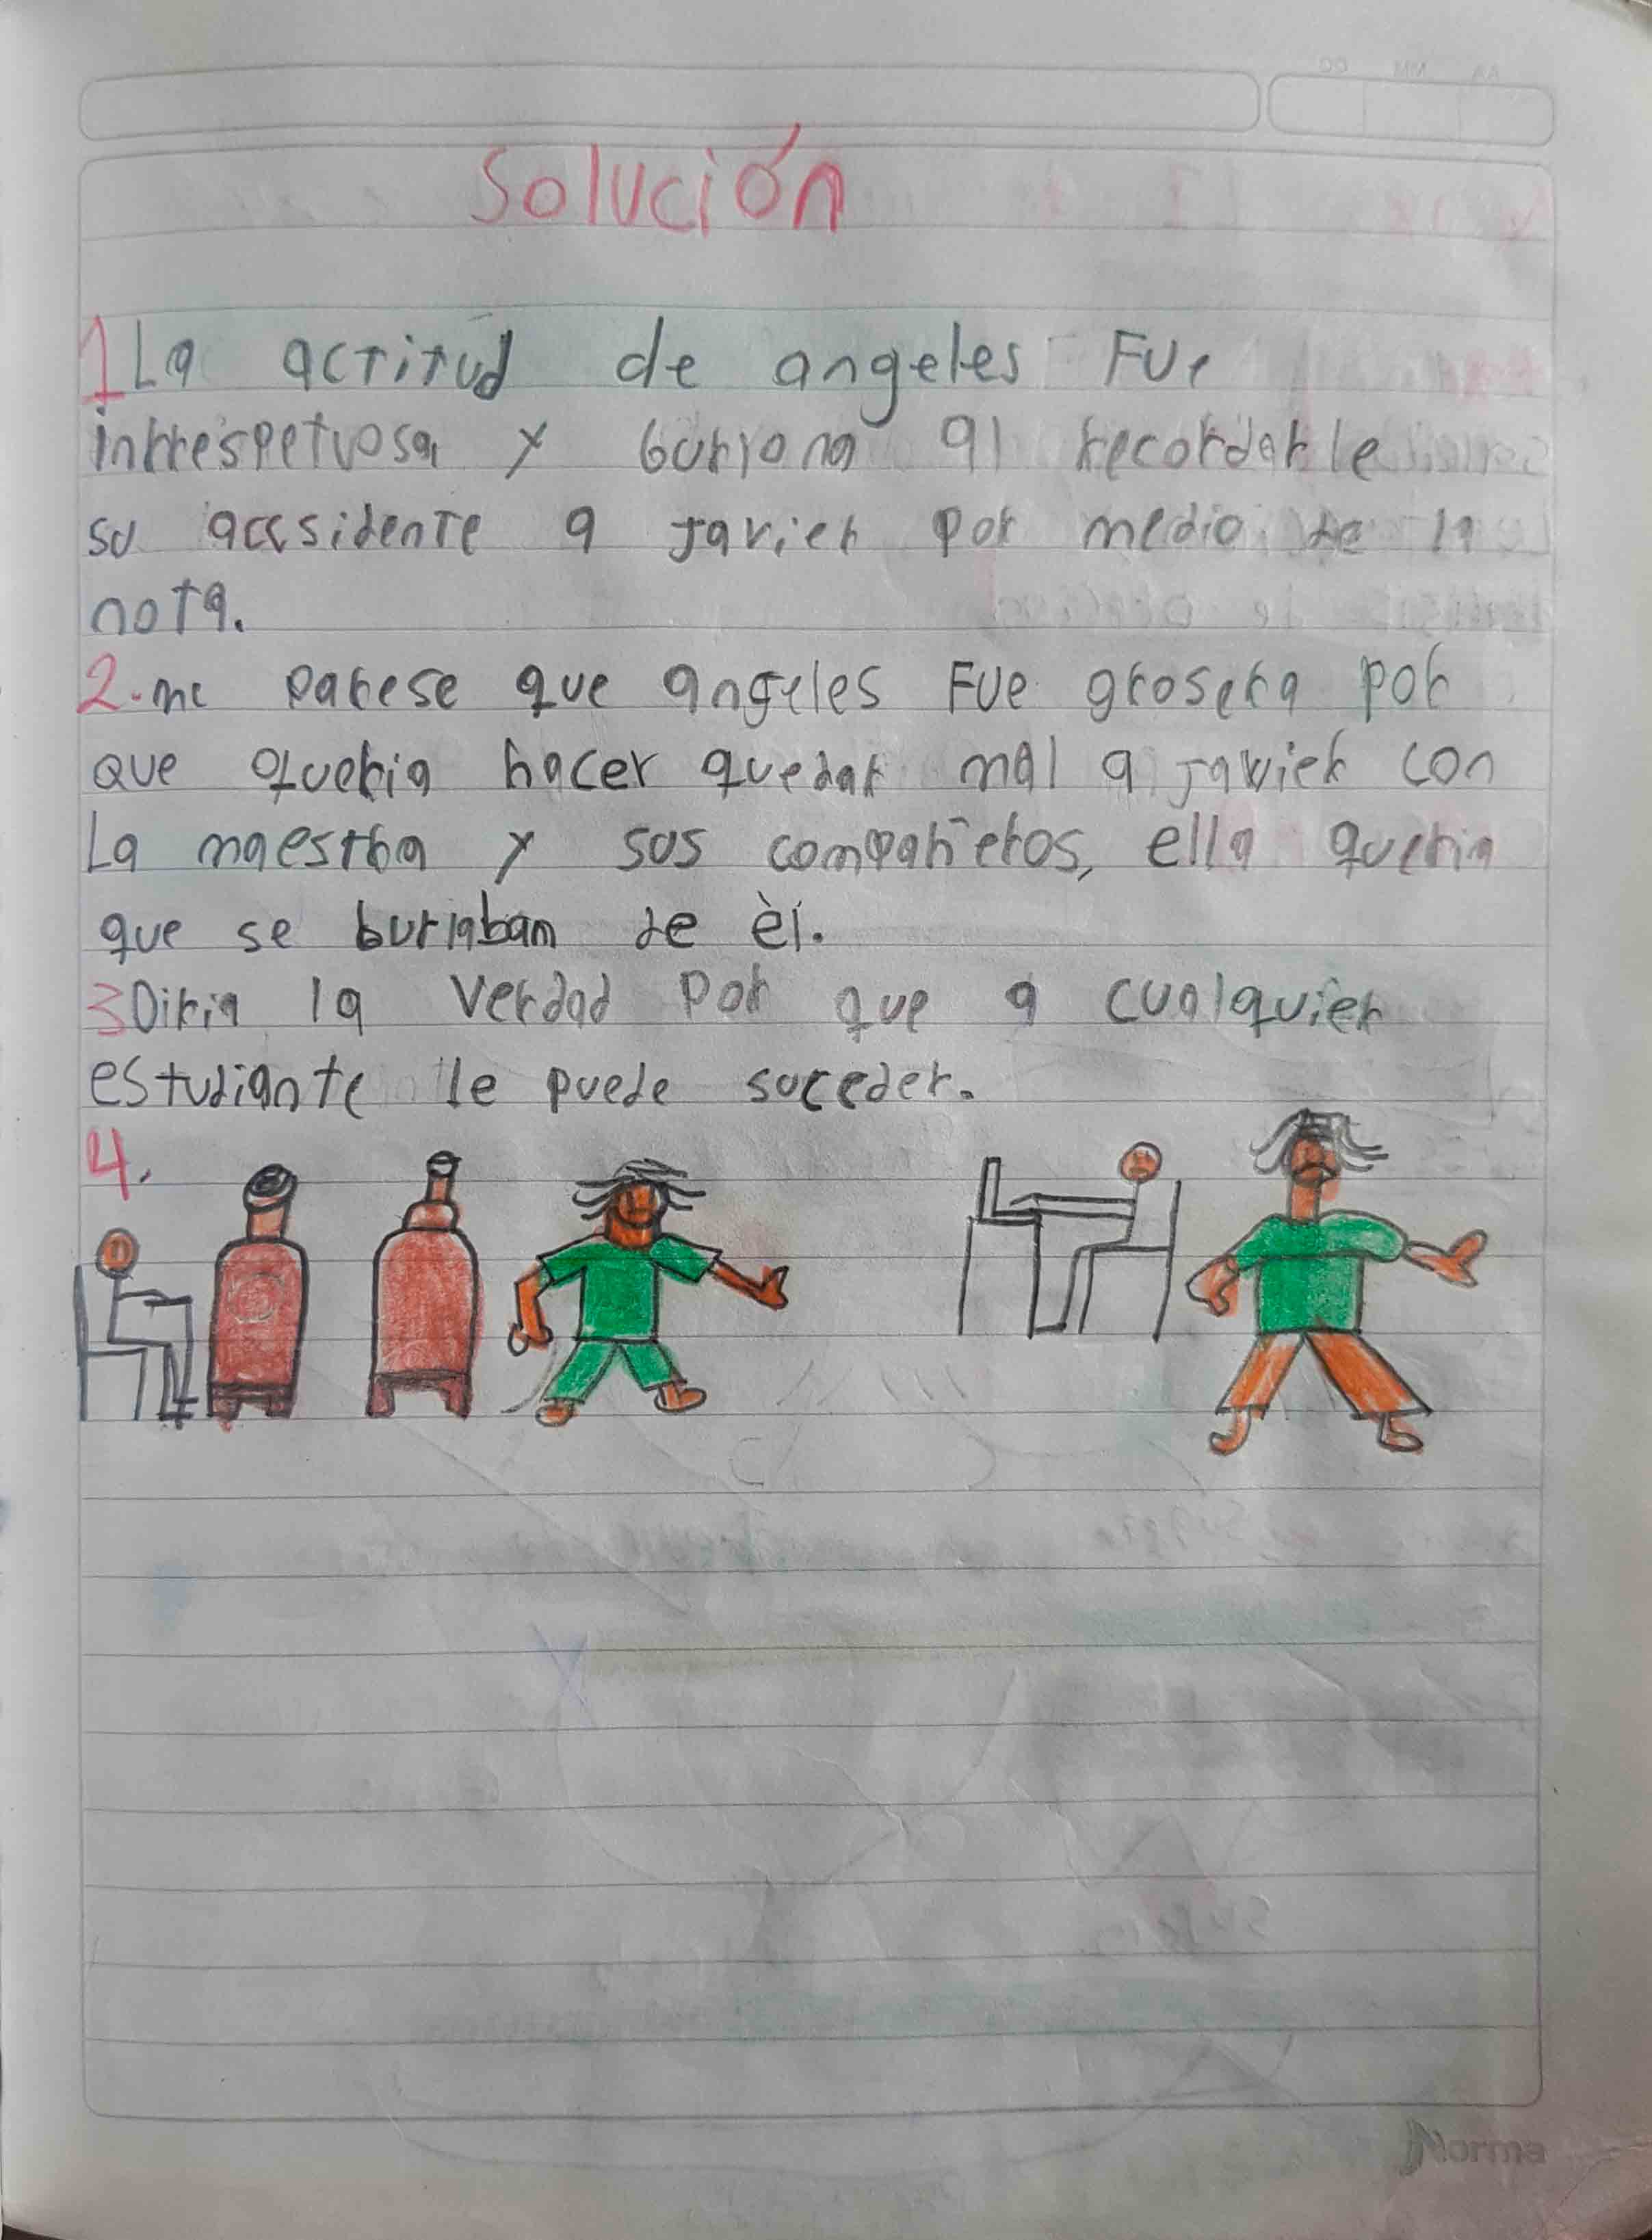 Solución
1 La actitud de angeles Fue
inrrespetuosa y burlona al recordarle
su accsidente a javier por medio de la
nota.
2. me parese que angeles Fue grosera por
que queria hacer quedar mal a javier con
La maestra y sus compañeros, ella queria
que se burlaban de èl.
3 Diria la verdad por que a cualquier
estudiante le puede suceder.
4.
Norma